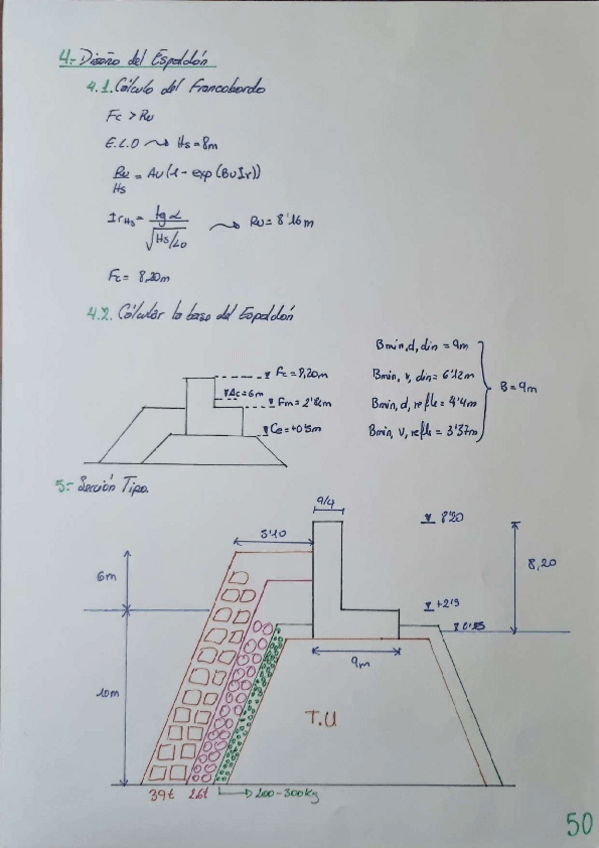 4.- Diseño del Espaldón
4.1. Cálculo del Francobordo
Fc > Ru
E.L.O ⤳ Hs = 8m
Ru/Hs = Au(1 - exp(Bu Ir))
IrHs = tg α / √(Hs/Lo) ⤳ Ru = 8'16 m
Fc = 8,20m
4.2. Cálcular la base del Espaldón
Fc = 8,20m
Ac = 6m
Ce = +0'5m
Bmin, d, din = 9m
Bmin, v, din = 6'12m
Bmin, d, refle = 4'4m
Bmin, v, refle = 3'37m
B = 9m
5.- Sección Tipo.
9/4
5'10
8'20
6m
8,20
9m
10m
T.U
39t 2.6t 200-300kg
50